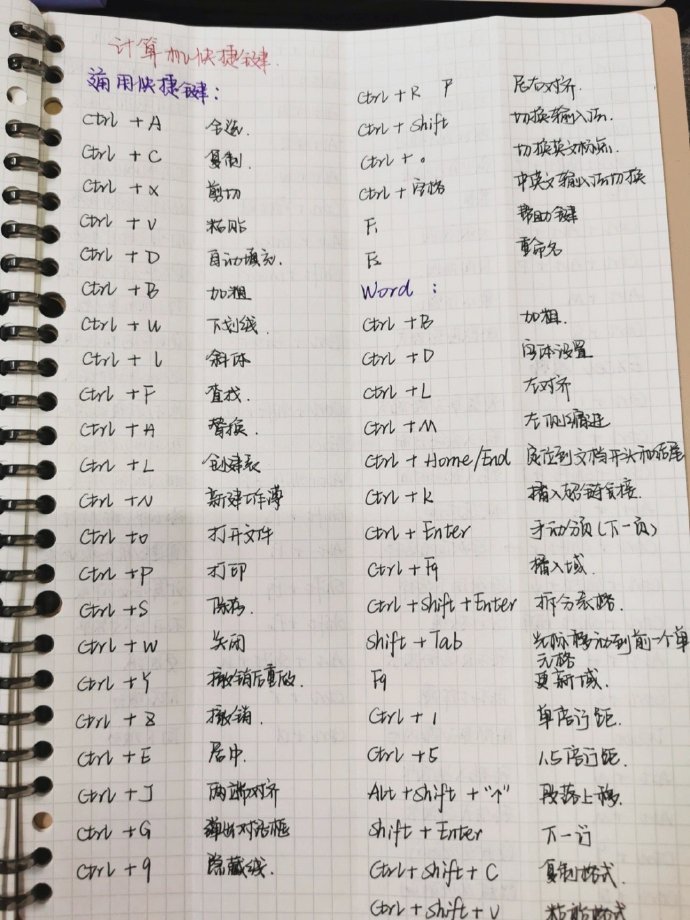 计算机快捷键.
通用快捷键：
Ctrl + A 全选.
Ctrl + C 复制.
Ctrl + X 剪切
Ctrl + V 粘贴
Ctrl + D 自动填充.
Ctrl + B 加粗
Ctrl + U 下划线.
Ctrl + I 斜体
Ctrl + F 查找.
Ctrl + H 替换.
Ctrl + L 创建表
Ctrl + N 新建工作薄
Ctrl + O 打开文件
Ctrl + P 打印
Ctrl + S 保存.
Ctrl + W 关闭
Ctrl + Y 撤销后重做.
Ctrl + Z 撤销.
Ctrl + E 居中.
Ctrl + J 两端对齐
Ctrl + G 弹出对话框
Ctrl + 9 隐藏线.
Ctrl + R 居右对齐
Ctrl + Shift 切换输入法.
Ctrl + 。 切换英文标点.
Ctrl + 空格 中英文输入法切换
F1 帮助键
F2 重命名
Word：
Ctrl + B 加粗.
Ctrl + D 字体设置
Ctrl + L 左对齐
Ctrl + M 左侧缩进
Ctrl + Home/End 定位到文档开头和结尾
Ctrl + K 插入超链接.
Ctrl + Enter 手动分页(下一页)
Ctrl + F9 插入域.
Ctrl + Shift + Enter 拆分表格.
Shift + Tab 光标移动到前一个单
元格
F9 更新域.
Ctrl + 1 单倍行距.
Ctrl + 5 1.5倍行距.
Alt + Shift + "↑" 段落上移.
Shift + Enter 下一行
Ctrl + Shift + C 复制格式.
Ctrl + Shift + V 粘贴格式